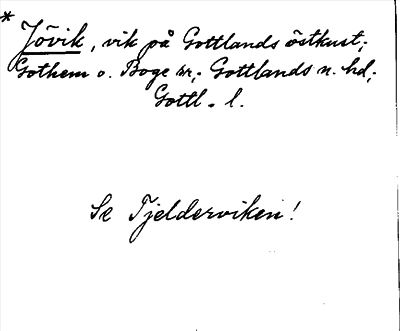 * Jövik, vik på Gottlands östkust;
Gothem o. Boge sr.; Gottlands n. hd;
Gottl. l.
Se Tjelderviken!